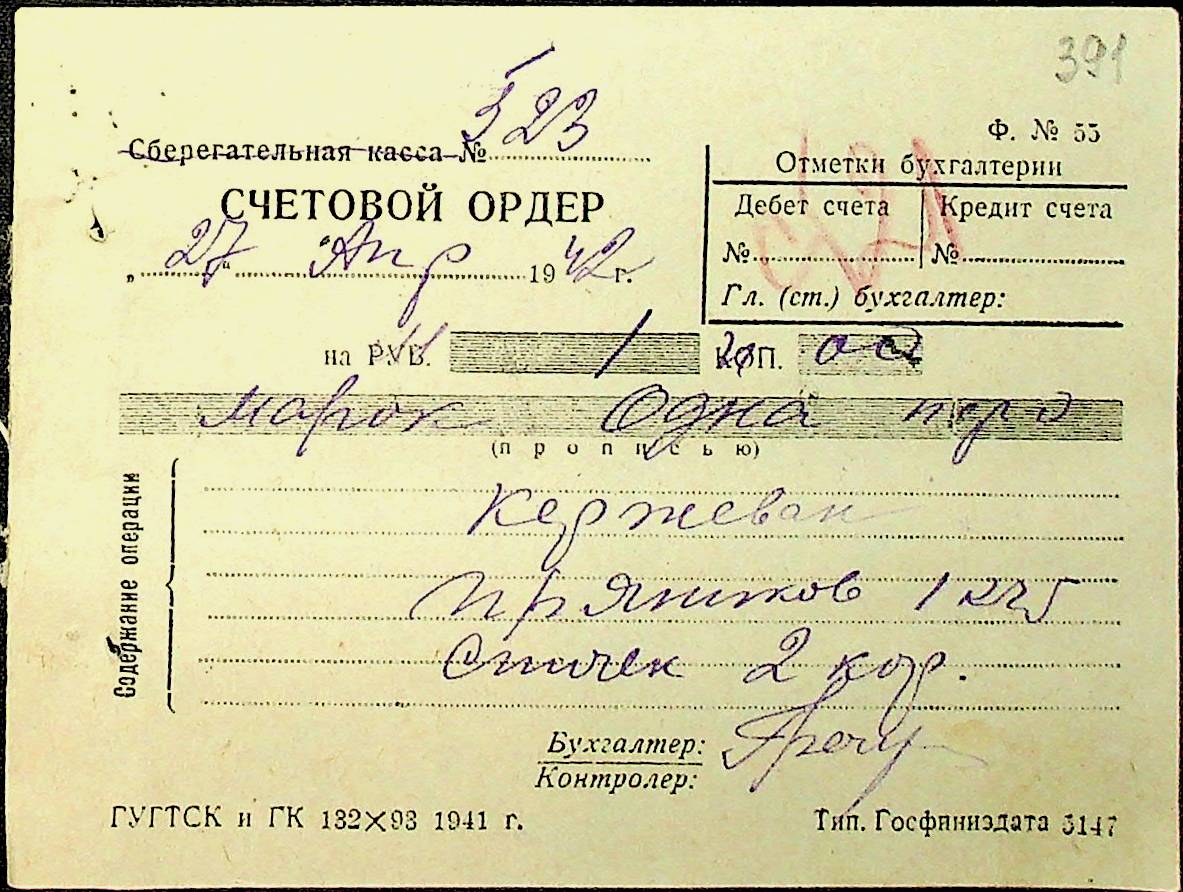 391
Ф. № 55
Сберегательная касса № 523
СЧЕТОВОЙ ОРДЕР
„27“ Апр 1942 г.
Отметки бухгалтерии
Дебет счета Кредит счета
№ №
Гл. (ст.) бухгалтер:
на РУБ. 1 КОП.
марок Одна
(прописью)
Содержание операции
Кержеван
Пряников 1
Спичек 2 кор.
Бухгалтер:
Контролер:
ГУГТСК и ГК 132×93 1941 г.
Тип. Госфиниздата 5147